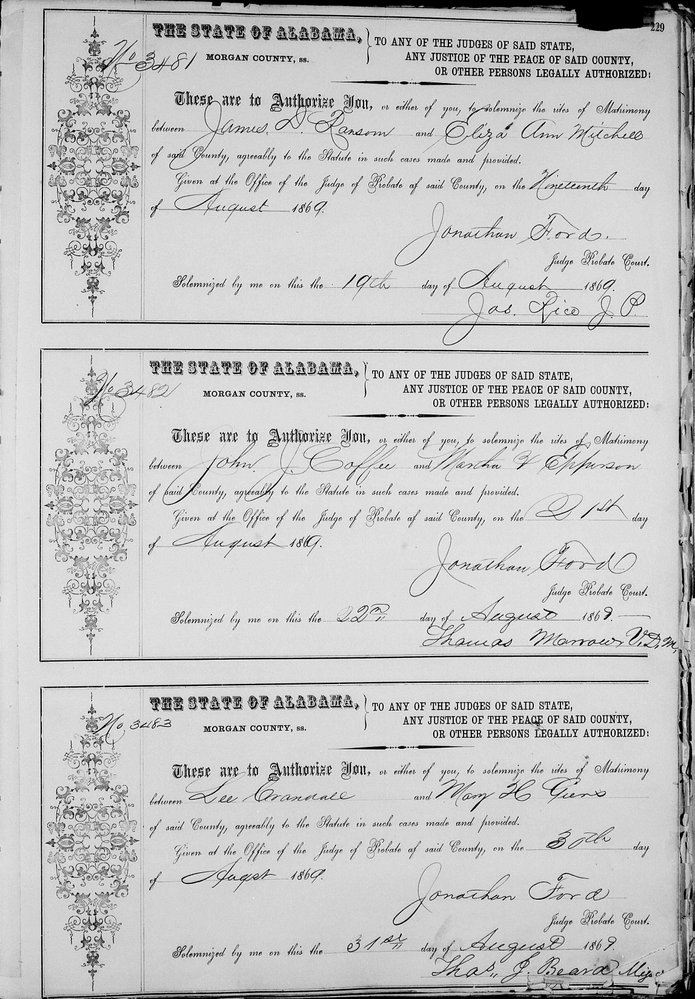 229
No 3481
THE STATE OF ALABAMA,
MORGAN COUNTY, ss.
TO ANY OF THE JUDGES OF SAID STATE,
ANY JUSTICE OF THE PEACE OF SAID COUNTY,
OR OTHER PERSONS LEGALLY AUTHORIZED:
These are to Authorize You, or either of you, to solemnize the rites of Matrimony
between James D. Ransom and Eliza Ann Mitchell
of said County, agreeably to the Statute in such cases made and provided.
Given at the Office of the Judge of Probate of said County, on the Nineteenth day
of August 1869.
Jonathan Ford.
Judge Probate Court.
Solemnized by me on this the 19th day of August 1869.
Jas. Rice J. P.
No 3482
THE STATE OF ALABAMA,
MORGAN COUNTY, ss.
TO ANY OF THE JUDGES OF SAID STATE,
ANY JUSTICE OF THE PEACE OF SAID COUNTY,
OR OTHER PERSONS LEGALLY AUTHORIZED:
These are to Authorize You, or either of you, to solemnize the rites of Matrimony
between John J. Coffee and Martha Epperson
of said County, agreeably to the Statute in such cases made and provided.
Given at the Office of the Judge of Probate of said County, on the 21st day
of August 1869.
Jonathan Ford
Judge Probate Court.
Solemnized by me on this the 22n day of August 1869.
Thomas V. D. M.
No. 3483
THE STATE OF ALABAMA,
MORGAN COUNTY, ss.
TO ANY OF THE JUDGES OF SAID STATE,
ANY JUSTICE OF THE PEACE OF SAID COUNTY,
OR OTHER PERSONS LEGALLY AUTHORIZED:
These are to Authorize You, or either of you, to solemnize the rites of Matrimony
between Lee Crandall and Mary H
of said County, agreeably to the Statute in such cases made and provided.
Given at the Office of the Judge of Probate of said County, on the 30th day
of Augst 1869.
Jonathan Ford
Judge Probate Court.
Solemnized by me on this the 31st day of August 1869.
Thos. J. Beard